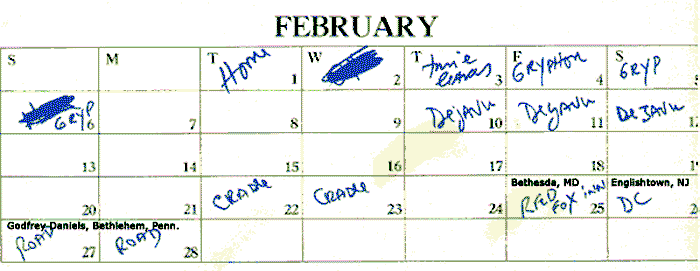 FEBRUARY
S M T W T F S
Home 1 2 3 GRYPHON 4 GRYP 5
GRYP 6 7 8 9 DEJAVU 10 DEJAVU 11 DEJAVU 12
13 14 15 16 17 18
Bethesda, MD Englishtown, NJ
20 21 CRADLE 22 CRADLE 23 24 RED FOX INN 25 DC 26
Godfrey Daniels, Bethlehem, Penn.
ROAD 27 ROAD 28